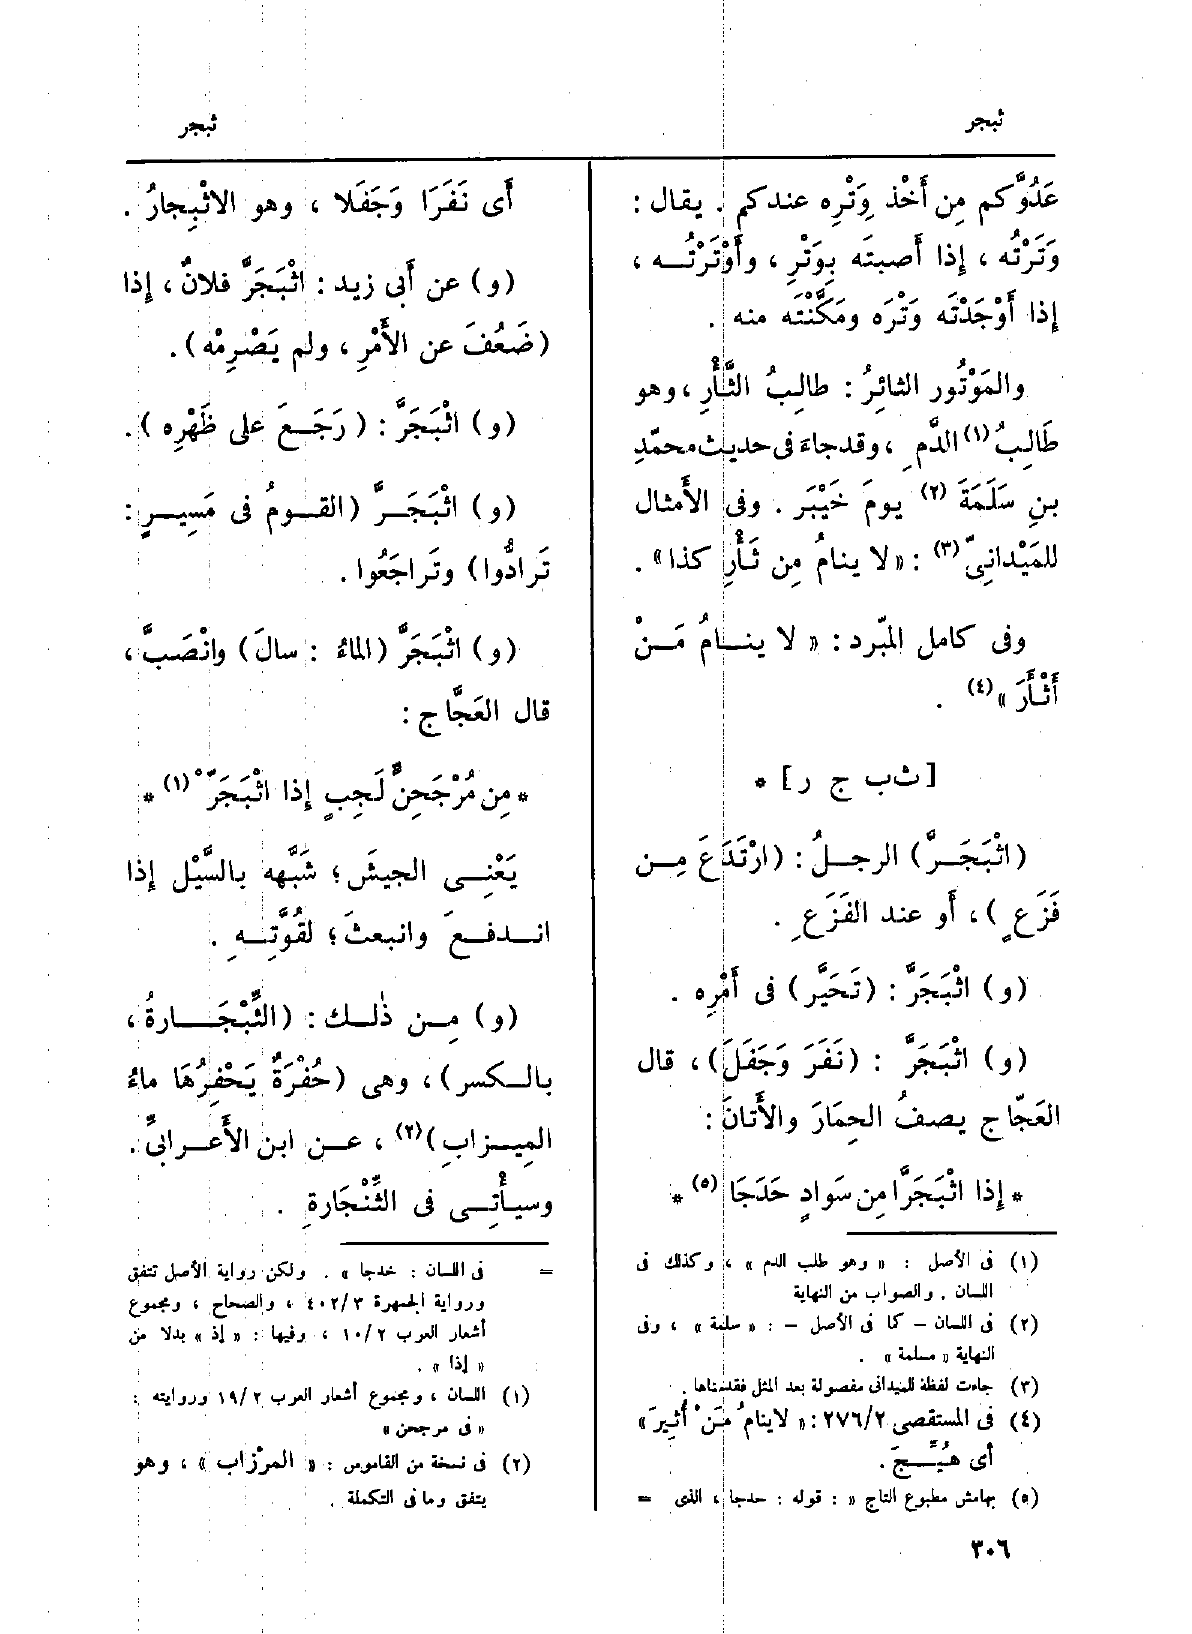 ثبجر
ثبجر
عَدُوَّكم مِن أَخْذ وَتْرِه عندكم . يقال :
وَتَرْتُه ، إذا أصبتَه بِوَتْرٍ ، وأَوْتَرْتُـه ،
إذا أَوْجَدْتَه وَتْرَه ومَكَّنْتَه منه .
والمَوْتُور الثائِرُ : طالِبُ الثَّأْرِ ، وهو
طَالِبُ (١) الدَّمِ ، وقد جاءَ فى حديث محمّدِ
بنِ سَلَمَةَ (٢) يومَ خَيْبَر . وفى الأَمثال
للمَيْدانِىّ (٣) : « لا ينامُ مِن ثَأْرِ كذا » .
وفى كامل المبّرد : « لا ينـامُ مَـنْ
أَثْأَرَ » (٤) .
[ ث ب ج ر ] *
(اثْبَجَـرَّ) الرجـلُ : (ارْتَدَعَ مِـن
فَزَعٍ )، أَو عند الفَزَعِ .
(و) اثْبَجَرَّ : (تَحَيَّر) فى أَمْرِه .
(و) اثْبَجَرَّ : (نَفَرَ وَجَفَلَ)، قال
العَجّاج يصفُ الحِمَارَ والأَتانَ :
* إذا اثْبَجَرَّا مِن سَوادٍ حَدَجَا (٥) *
(١) فى الأصل : « وهو طلب الدم » ، وكذلك فى
اللسان . والصواب من النهاية
(٢) فى اللسان – كما فى الأصل – : « سلمة » ، وفى
النهاية « مسلمة » .
(٣) جاءت لفظة الميدانى مفصولة بعد المثل فقدمناها .
(٤) فى المستقصى ٢٧٦/٢ : « لاينامُ مَنْ أُثِيرَ »
أى هُيِّـجَ .
(٥) بهامش مطبوع التاج « : قوله : حدجا ، الذى =
أَى نَفَرَا وَجَفَلَا ، وهو الاثْبِجارُ .
(و) عن أَبى زيد : اثْبَجَرَّ فلانٌ ، إذا
(ضَعُفَ عن الأَمْرِ ، ولم يَصْرِمْه) .
(و) اثْبَجَرَّ : ( رَجَـعَ على ظَهْرِه ) .
(و) اثْبَجَـرَّ (القـومُ فى مَسِيـرٍ :
تَرادُّوا) وتَراجَعُوا .
(و) اثْبَجَرَّ (الماءُ : سالَ) وانْصَبَّ ،
قال العَجَّاج :
* مِن مُرْجَحِنٍّ لَجِبٍ إذا اثْبَجَرّْ (١) *
يَعْنِـى الجيشَ ؛ شَبَّهه بالسَّيْل إذا
انـدفـعَ وانبعثَ ؛ لقُوَّتِـهِ .
(و) مِـن ذٰلـك : (الثِّبْجَـارةُ ،
بالـكسر) ، وهى (حُفْرَةٌ يَحْفِرُهَا ماءُ
المِيـزابِ) (٢) ، عـن ابن الأَعرابىِّ .
وسيأْتِـى فى الثِّنْجَارةِ .
= فى اللسان : خدجا » . ولكن رواية الأصل تتفق
ورواية الجمهرة ٤٠٢/٣ ، والصحاح ، ومجموع
أشعار العرب ١٠/٢ ، وفيها : « إذ » بدلا من
« إذا » .
(١) اللسان ، ومجموع أشعار العرب ١٩/٢ وروايته :
« فى مرجحن »
(٢) فى نسخة من القاموس : « المِرْزاب » ، وهو
يتفق وما فى التكملة .
٣٠٦